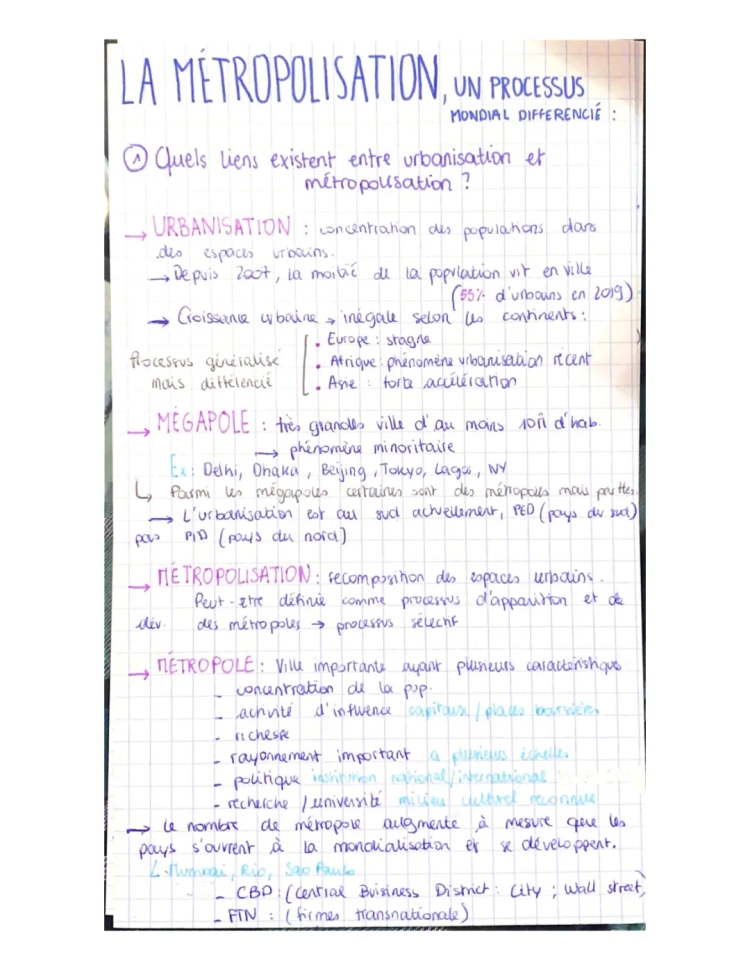 LA MÉTROPOLISATION, UN PROCESSUS
MONDIAL DIFFERENCIÉ :
① Quels liens existent entre urbanisation et
métropolisation ?
→ URBANISATION : concentration des populations dans
des espaces urbains.
→ Depuis 2007, la moitié de la population vit en ville
(55% d'urbains en 2019)
→ Croissance urbaine → inégale selon les continents :
• Europe : stagne
Processus généralisé • Afrique : phénomène urbanisation récent
mais différencié • Asie : forte accélération
→ MÉGAPOLE : très grandes ville d'au moins 10M d'hab.
→ phénomène minoritaire
Ex : Delhi, Dhaka, Beijing, Tokyo, Lagos, NY
↳ Parmi les mégapoles certaines sont des métropoles mais pas ttes.
→ L'urbanisation est au sud actuellement, PED (pays du sud)
pays PID (pays du nord)
→ MÉTROPOLISATION : recomposition des espaces urbains.
Peut-être définie comme processus d'apparition et de
dév. des métropoles → processus sélectif
→ MÉTROPOLE : Ville importante ayant plusieurs caractéristiques
- concentration de la pop.
- activité d'influence capitaux / places boursières
- richesse
- rayonnement important a plusieurs échelles
- politique institution national/international
- recherche / université milieu culturel reconnue
→ le nombre de métropole augmente à mesure que les
pays s'ouvrent à la mondialisation et se développent.
↳ Mumbai, Rio, Sao Paulo
- CBD : (Central Buisiness District : City ; Wall street)
- FTN : (firmes transnationale)